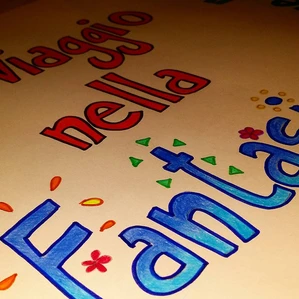 viaggio
nella
Fantas